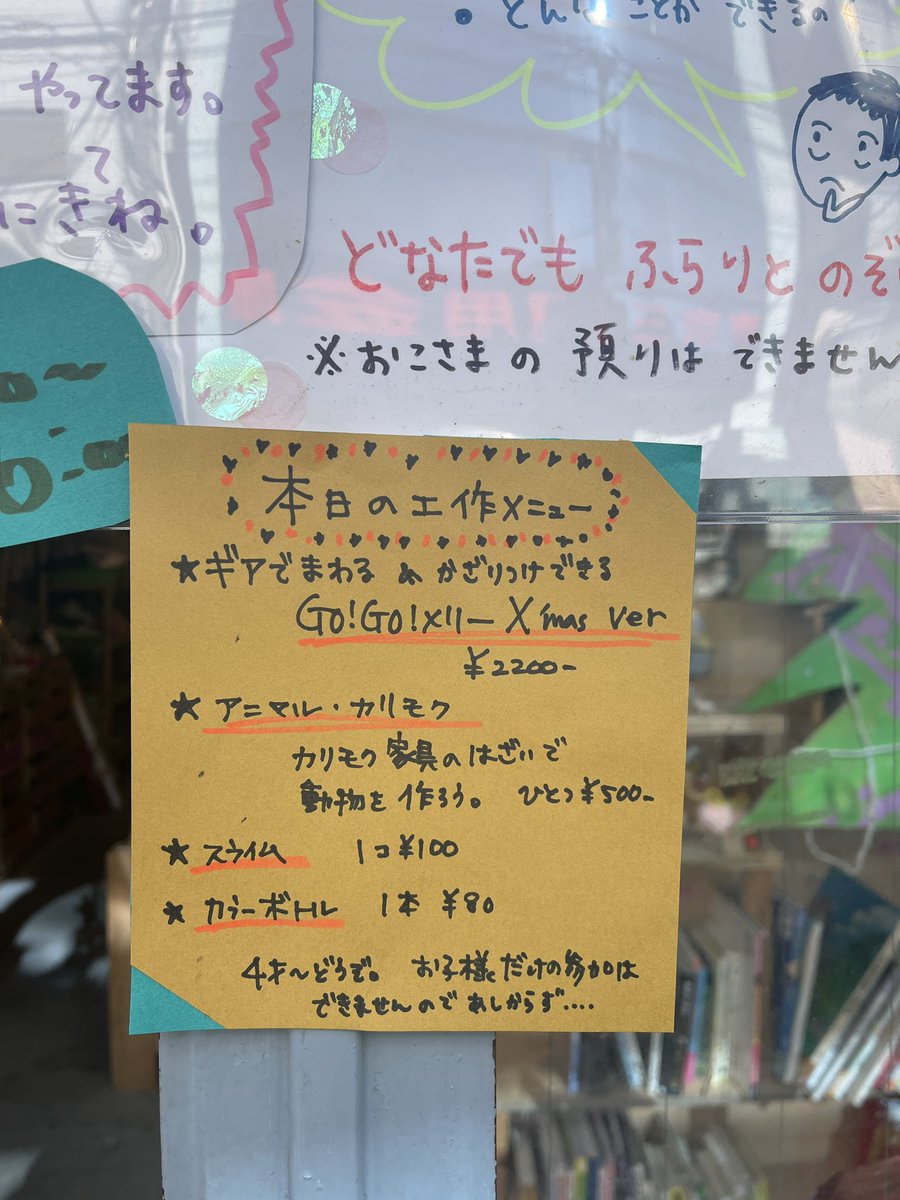 ・どんなことができるの
やってます。
て
にきね。
どなたでも ふらりと のぞ
※おこさまの 預りは できません
本日の工作メニュー
★ギアでまわる & かざりつけできる
GO!GO!メリー X'mas ver
¥2200-
★ アニマル・カリモク
カリモク家具のはざいで
動物を作ろう。 ひとつ¥500-
★ スライム 1コ¥100
★ カラーボトル 1本 ¥80
4才〜どうぞ。 お子様だけの参加は
できませんので あしからず‥‥